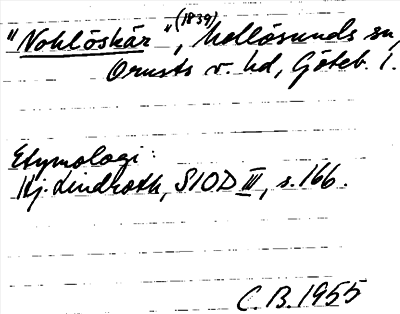 "Nohlöskär" (1839), Mollösunds sn,
Orusts v. hd, Göteb. l.
Etymologi:
Hj. Lindroth, SIOD III, s. 166.
C. B. 1955